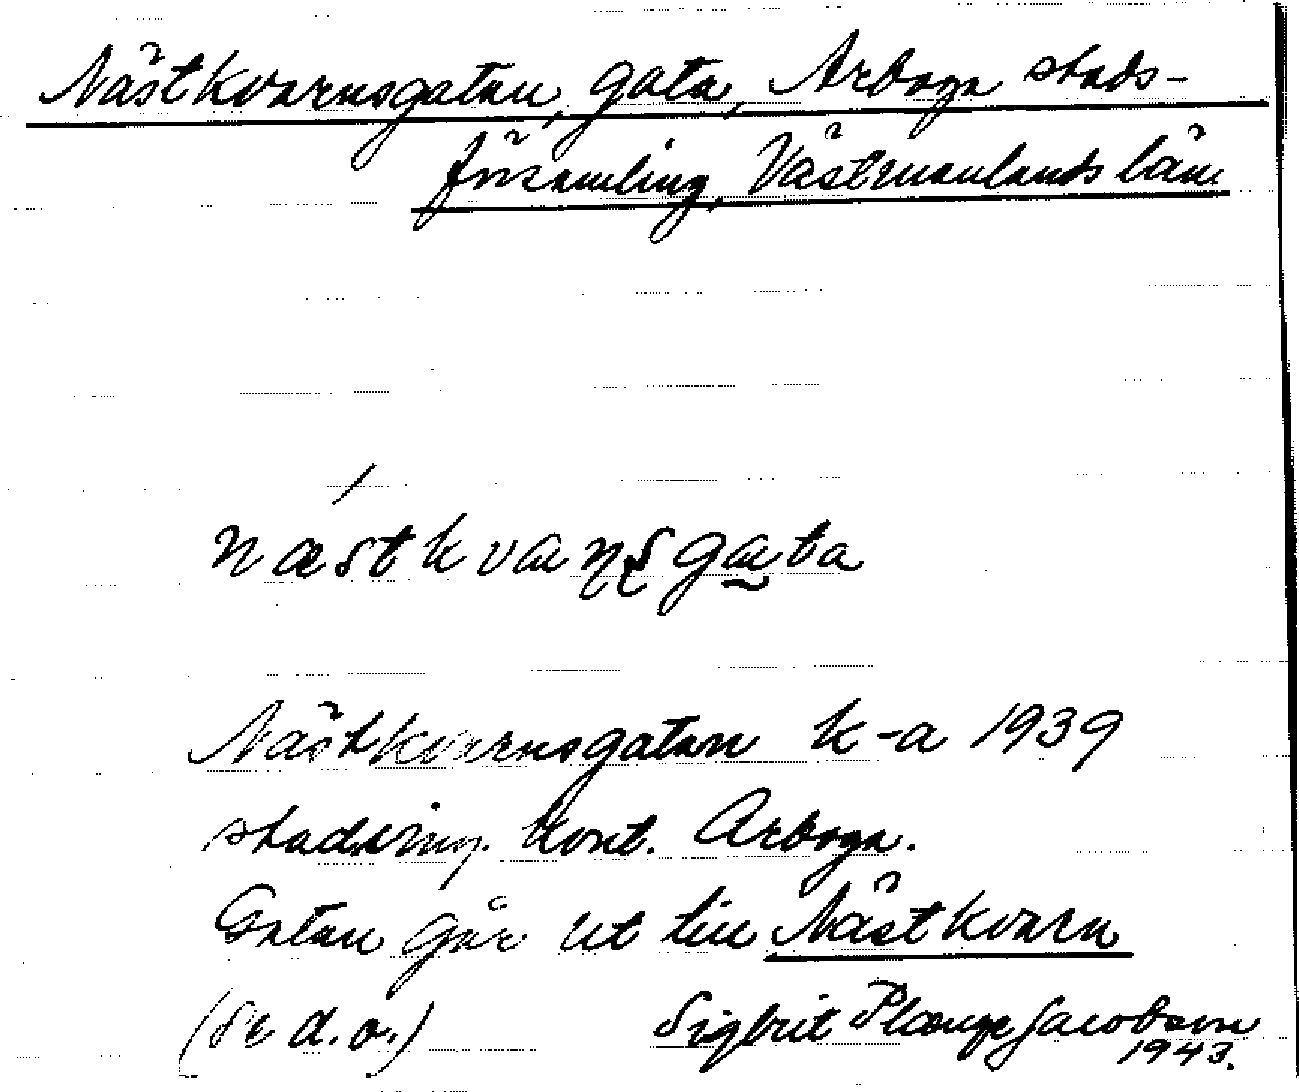 Nästkvarnsgatan, gata, Arboga stads-
församling, Västmanlands län.
næstkvaɳʂgata
Nästkvarnsgatan k-a 1939
stadsing. kont. Arboga.
Gatan går ut till Nästkvarn
(Se d.o.) Sigbrit Plænge Jacobson
1943.